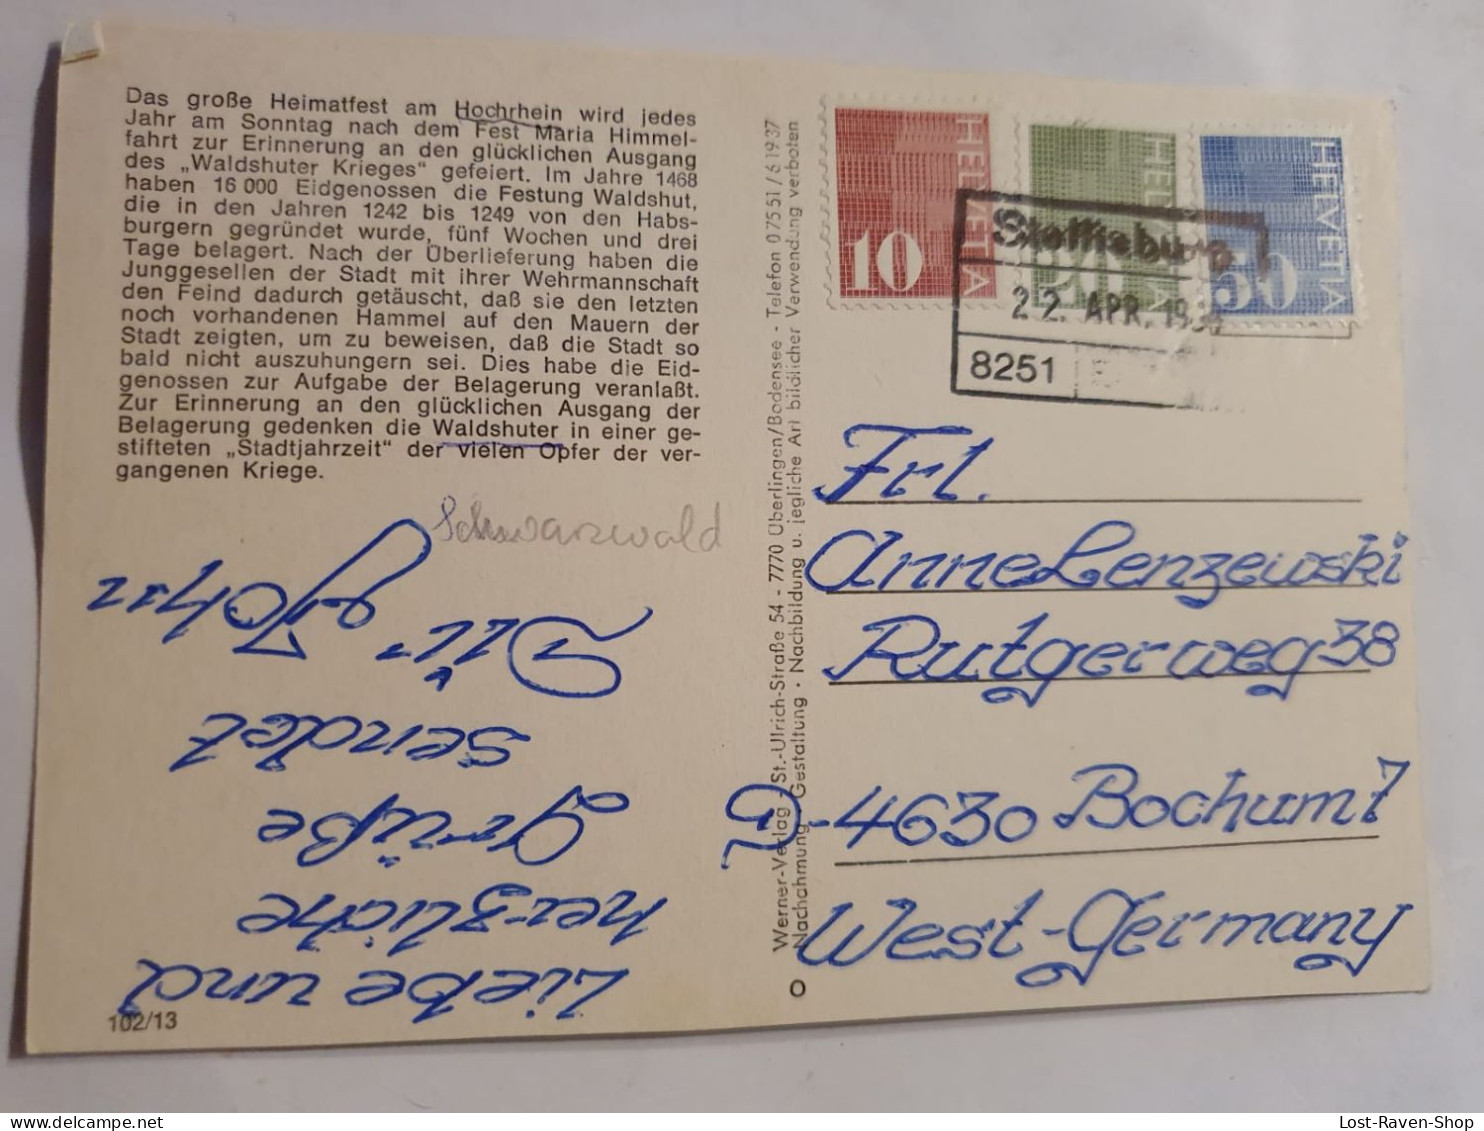 Das große Heimatfest am Hochrhein wird jedes
Jahr am Sonntag nach dem Fest Maria Himmel-
fahrt zur Erinnerung an den glücklichen Ausgang
des „Waldshuter Krieges" gefeiert. Im Jahre 1468
haben 16 000 Eidgenossen die Festung Waldshut,
die in den Jahren 1242 bis 1249 von den Habs-
burgern gegründet wurde, fünf Wochen und drei
Tage belagert. Nach der Überlieferung haben die
Junggesellen der Stadt mit ihrer Wehrmannschaft
den Feind dadurch getäuscht, daß sie den letzten
noch vorhandenen Hammel auf den Mauern der
Stadt zeigten, um zu beweisen, daß die Stadt so
bald nicht auszuhungern sei. Dies habe die Eid-
genossen zur Aufgabe der Belagerung veranlaßt.
Zur Erinnerung an den glücklichen Ausgang der
Belagerung gedenken die Waldshuter in einer ge-
stifteten „Stadtjahrzeit" der vielen Opfer der ver-
gangenen Kriege.
Schwarzwald
Liebe und
herzliche
Grüße
sendet
Dir
102/13
Werner-Verlag - St.-Ulrich-Straße 54 - 7770 Überlingen/Bodensee - Telefon 0 75 51 / 6 19 37
Nachahmung - Gestaltung · Nachbildung u. jegliche Art bildlicher Verwendung verboten
O
HELVETIA
10
HELVETIA
20
HELVETIA
50
22. APR.
8251
Frl.
Anne Lenzewski
Rutgerweg 38
D-4630 Bochum 7
West-Germany
Lost-Raven-Shop